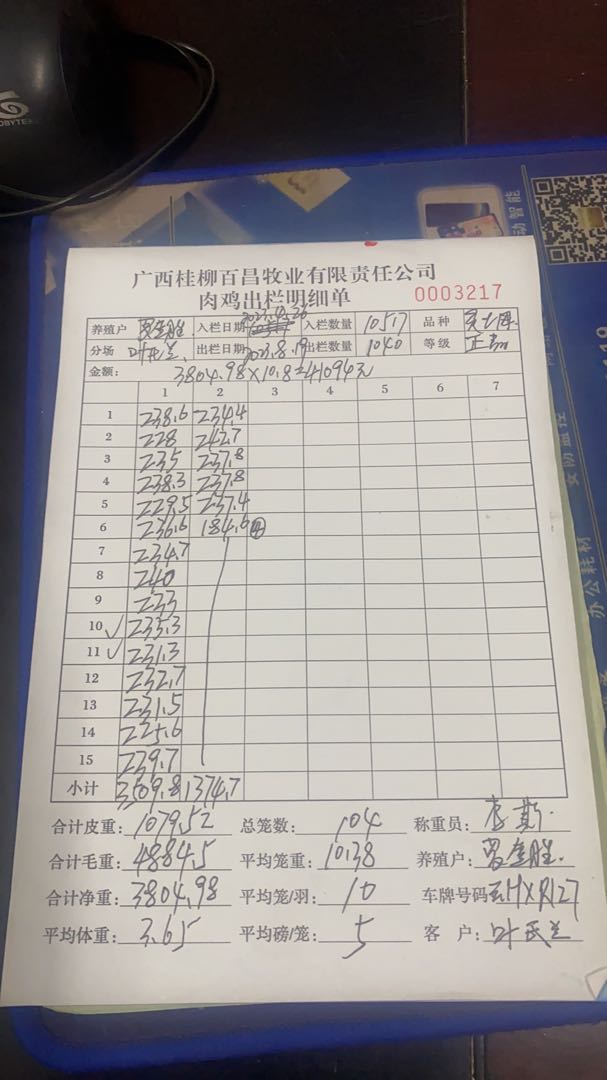 广西桂柳百昌牧业有限责任公司
肉鸡出栏明细单 0003217
养殖户 入栏日期 入栏数量 10517 品种
分场 叶民兰 出栏日期 2023.8.19 出栏数量 1040 等级 正品
金额: 3804.98×10.8=41094元
1 2 3 4 5 6 7
1 238.6 234.4
2 228 242.7
3 235 237.8
4 238.3 237.8
5 229.5 237.4
6 236.6 184.6 ④
7 234.7
8 240
9 233
10 ✓
11 ✓ 231.3
12 232.7
13 231.5
14 225.6
15 239.7
小计 3509.8 1374.7
合计皮重: 1079.52 总笼数: 104 称重员:
合计毛重: 4884.5 平均笼重: 10.38 养殖户:
合计净重: 3804.98 平均笼/羽: 10 车牌号码
平均体重: 3.65 平均磅/笼: 5 客户: 叶民兰